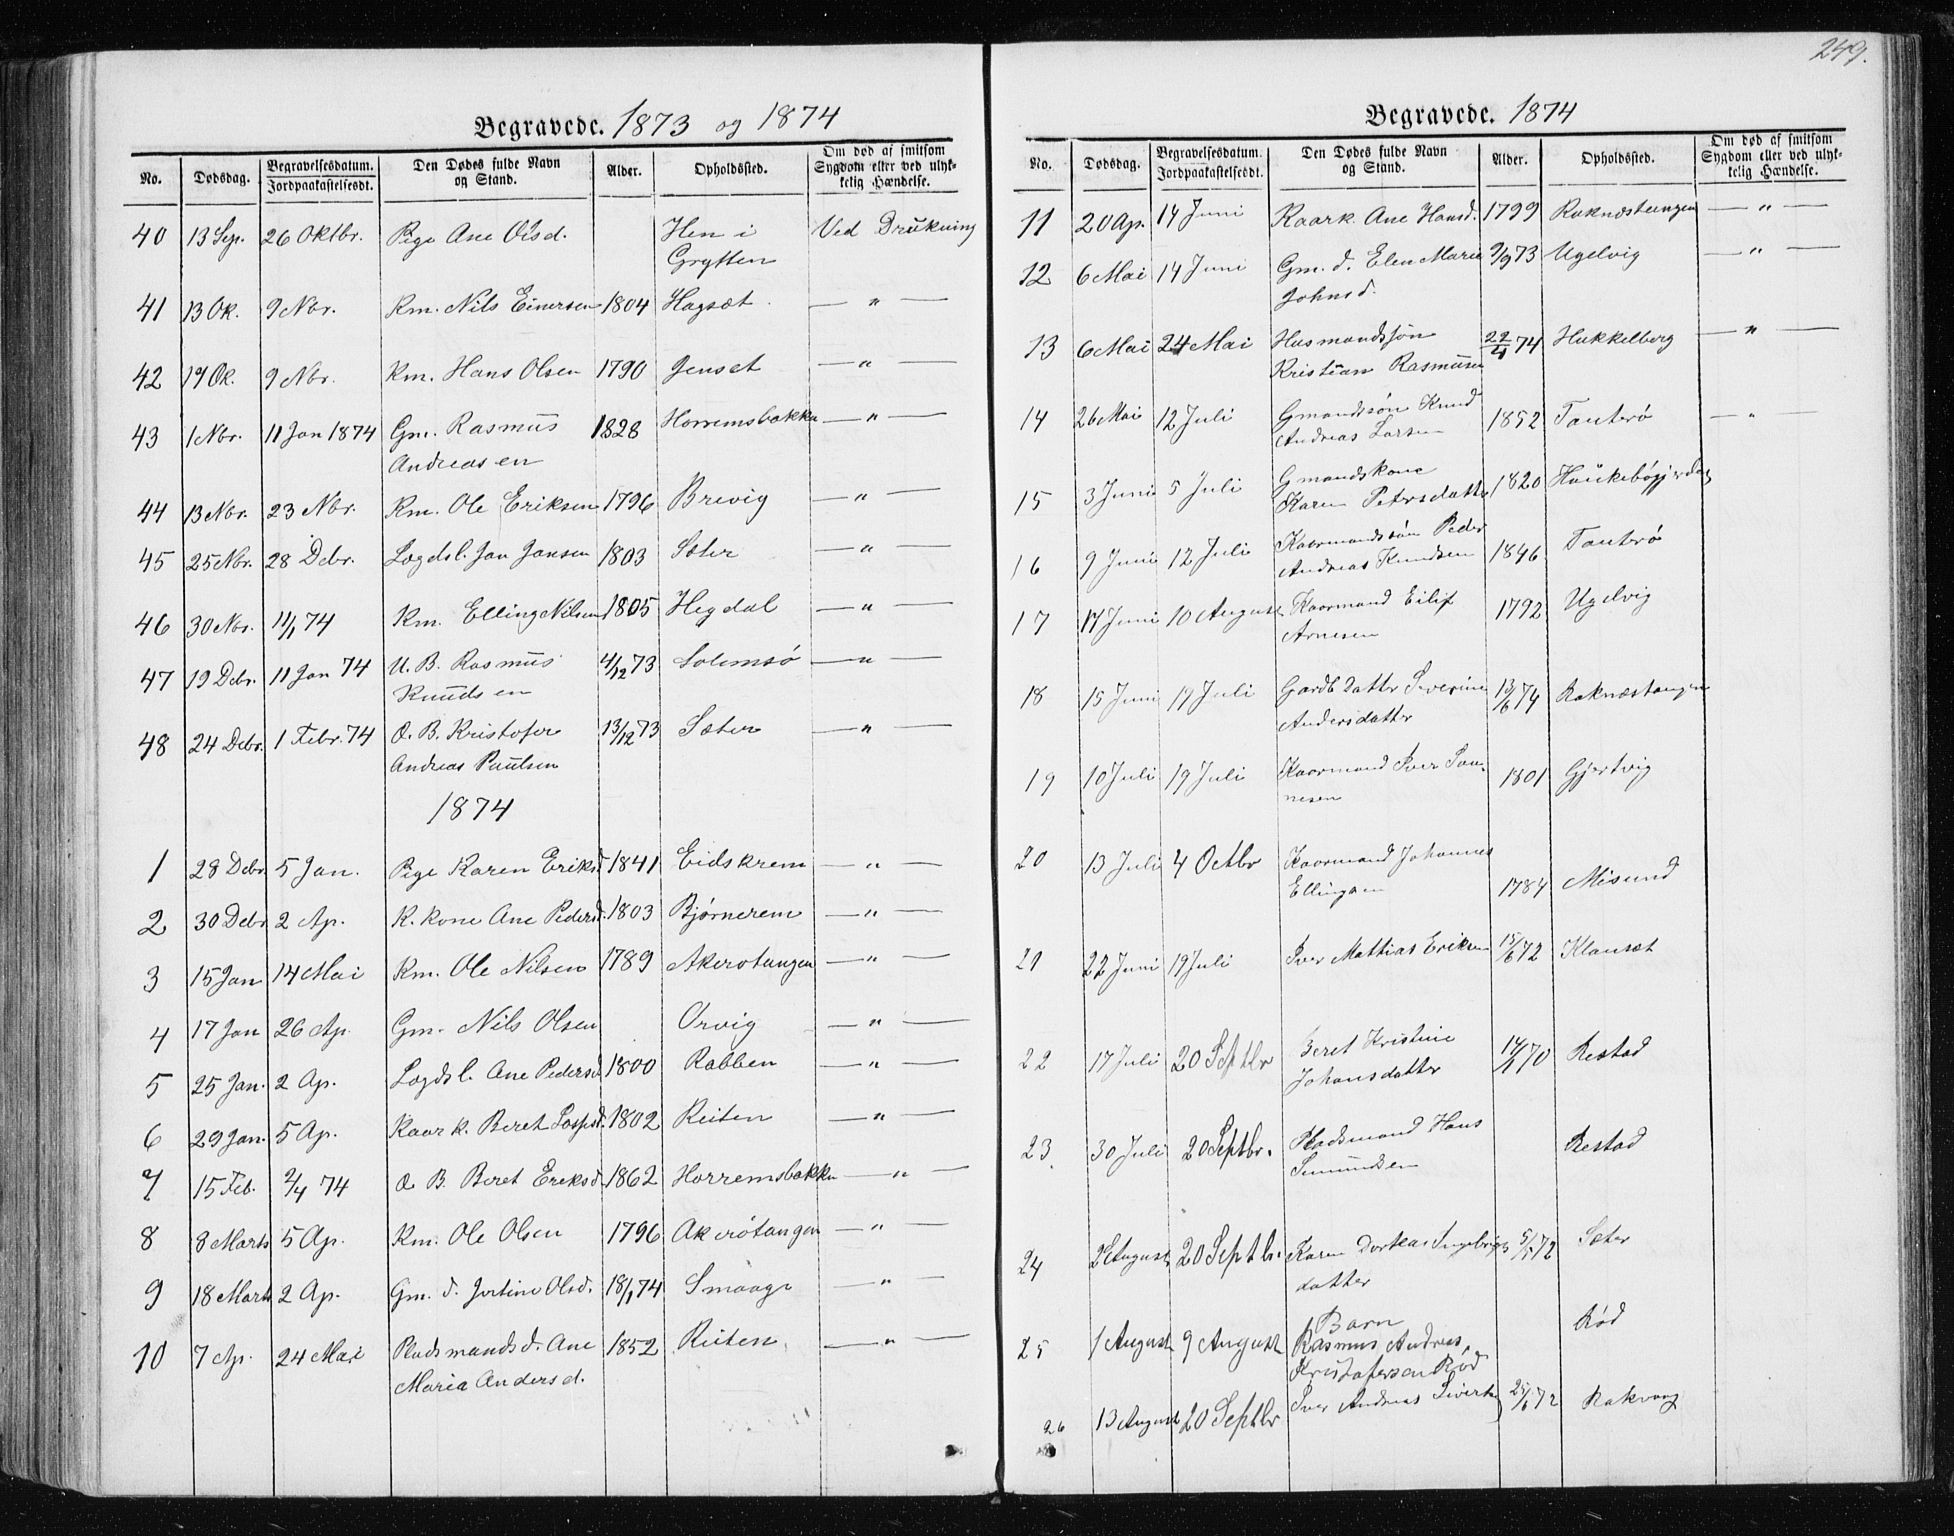 249.
Begravede. 1873 og 1874
No. Dødsdag. Begravelsesdatum. Jordpaakastelsesdt. Den Dødes fulde Navn og Stand. Alder. Opholdssted. Om død af smitsom Sygdom eller ved ulykkelig Hændelse.
40 13 Sep. 26 Oktbr. Pige Ane Olsd. Hen i Ved Drukning
Grytten
41 13 Ok. 9 Nbr. Km. Nils Einersen 1804 Hagsæt — " —
42 19 Ok. 9 Nbr. Km. Hans Olsen 1790 Jenset — " —
43 1 Nbr. 11 Jan 1874 Gm. Rasmus 1828 Horremsbakke — " —
Andreasen
44 13 Nbr. 23 Nbr. Km. Ole Eriksen 1796 Brevig — " —
45 25 Nbr. 28 Debr. Lægdsl. Jan Jansen 1803 Sæter — " —
46 30 Nbr. 11/1 74 Km. Elling Nilsen 1805 Hegdal — " —
47 19 Debr. 11 Jan 74 U. B. Rasmus 4/12 73 Solemsø — " —
Knudsen
48 24 Debr. 1 Febr. 74 Æ. B. Kristofer 13/12 73 Sæter — " —
Andreas Paulsen
1874
1 28 Debr 5 Jan. Pige Karen Eriksd. 1841 Eidskrem — " —
2 30 Debr 2 Ap. K. kone Ane Pedersd. 1803 Bjørnerem — " —
3 15 Jan 14 Mai Km. Ole Nilsen 1789 Akerøtangen — " —
4 17 Jan 26 Ap. Gm. Nils Olsen Orvig — " —
5 25 Jan. 2 Ap. Lægdsl. Ane Pedersd 1800 Rabben — " —
6 29 Jan. 5 Ap. Kaark. Beret 1802 Reiten — " —
7 15 Feb. 2/4 74 Æ B. Beret Eriksd 1862 Horremsbakke — " —
8 8 Marts 5 Ap. Km. Ole Olsen 1796 Akerøtangen — " —
9 18 Marts 2 Ap. Gm. d. Jertine Olsd. 18/1 74 Smaage — " —
10 7 Ap. 24 Mai Pladsmandsd. Ane 1852 Reiten — " —
Maria Andersd.
Begravede. 1874
No. Dødsdag. Begravelsesdatum. Jordpaakastelsesdt. Den Dødes fulde Navn og Stand. Alder. Opholdssted. Om død af smitsom Sygdom eller ved ulykkelig Hændelse.
11 20 Ap. 14 Juni Kaark. Ane Hansd. 1799 Raknæstangen — " —
12 6 Mai 14 Juni Gm. d. Elen Marie 9/9 73 Ugelvig — " —
Johnsd.
13 6 Mai 24 Mai Husmandssøn 22/4 74 Hukkelberg — " —
Kristian Rasmusen
14 26 Mai 12 Juli Gmandssøn Knud 1852 Tauterø — " —
Andreas Larsen
15 3 Juni 5 Juli Gmandskone 1820
Karen Petersdatter
16 9 Juni 12 Juli Kaarmandssøn Peder 1846 Tauterø
Andreas Knudsen
17 17 Juni 10 August Kaarmand Eilif 1792 Ugelvig
Arnesen
18 15 Juni 19 Juli Gardb. Datter Severine 13/6 74 Raknæstangen
Andersdatter
19 10 Juli 19 Juli Kaarmand Iver 1801 Gjertvig
nesen
20 13 Juli 4 Octbr Kaarmand Johannes
Ellingsen 1784 Misund
21 22 Juni 19 Juli Iver Mathias Eriksen 15/6 72 Klauset
22 17 Juli 20 Septbr Beret Kristine 14/1 70 Restad
Johansdatter
23 30 Juli 20 Septbr. Pladsmand Hans Restad
24 2 August 20 Septbr. Karen Dorthea Ingebrigts 5/5 72 Sæter
datter
25 1 August 9 August Barn Rød
Rasmus Andreas
Kristofersen Rød
26 13 August 20 Septbr Iver Andreas Sivertsen 25/6 72 Rakvaag